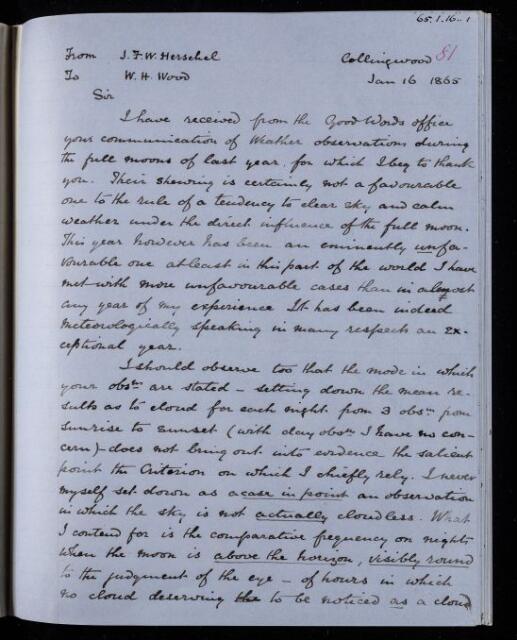 65.1.16-1
81
From J.F.W. Herschel Collingwood
To W.H. Wood Jan 16 1865
Sir
I have received from the Good Words office
your communication of Weather observations during
the full moons of last year, for which I beg to thank
you. Their shewing is certainly not a favourable
one to the rule of a tendency to clear sky and calm
weather under the direct influence of the full moon.
This year however has been an eminently unfa-
vourable one at least in this part of the world I have
met with more unfavourable cases than in almost
any year of my experience It has been indeed
meteorologically speaking in many respects an ex-
ceptional year.
I should observe too that the mode in which
your obsns are stated – setting down the mean re-
sults as to cloud for each night from 3 obsns from
sunrise to sunset (with day obsns I have no con-
cern) – does not bring out into evidence the salient
point the Criterion on which I chiefly rely. I never
myself set down as a case in point an observation
in which the sky is not actually cloudless. What
I contend for is the comparative frequency on nights
when the moon is above the horizon, visibly round
to the judgment of the eye – of hours in which
no cloud deserving the to be noticed as a cloud